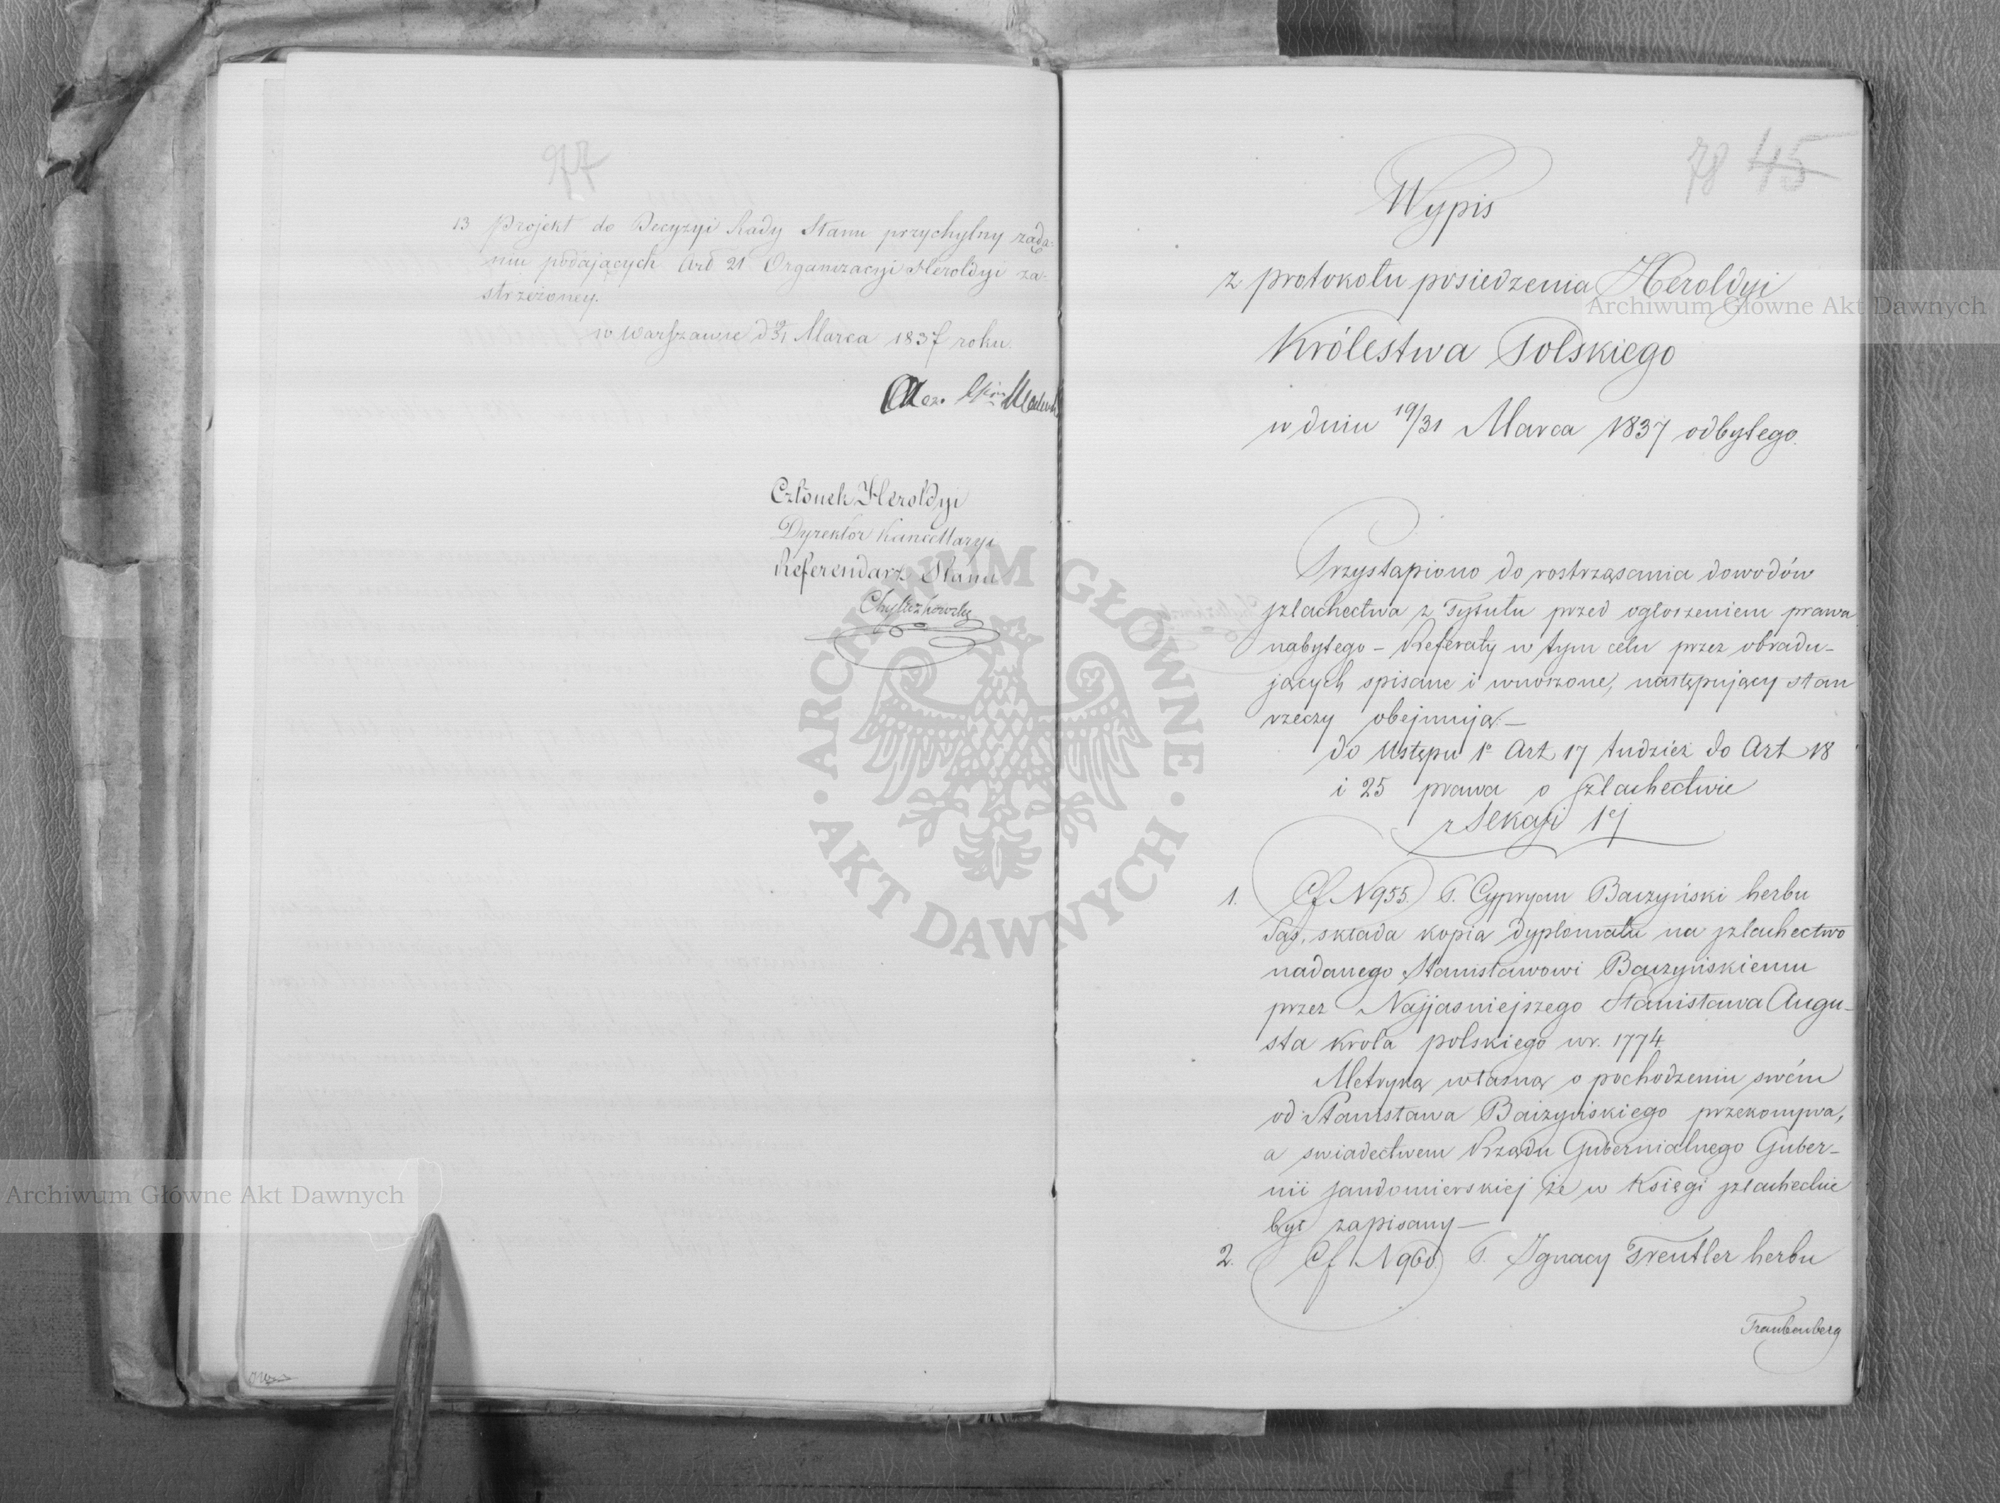 77
13 Projekt do Decyzyi Rady Stanu przychylny żąda-
niu podających Art. 21 Organizacyi Heroldyi za-
strzeżoney.
w Warszawie d 19/31 Marca 1837 roku.
Członek Heroldyi
Dyrektor Kancellaryi
Referendarz Stanu
78 45
Wypis
z protokołu posiedzenia Heroldyi
Królestwa Polskiego
w dniu 19/31 Marca 1837 odbytego.
Przystąpiono do rostrząsania dowodów
szlachectwa z Tytułu przed ogłoszeniem prawa
nabytego – Referaty w tym celu przez obradu-
jących spisane i wnoszone, następujący stan
rzeczy obejmują. –
do Ustępu 1º Art 17 tudzież do Art 18
i 25 prawa o szlachectwie
z Sekcji 1ej
1. Cf N 955. P. Cypryan Baczyński herbu
Sas, składa kopią dyplomatu na szlachectwo
nadanego Stanisławowi Baczyńskiemu
przez Najjasniejszego Stanisława Augu-
sta króla polskiego w r. 1774.
Metryką własną o pochodzeniu swém
od Stanisława Baczyńskiego przekonywa,
a swiadectwem Rządu Gubernialnego Guber-
nii sandomierskiej że w Księgi szlacheckie
był zapisany –
2. Cf N 960. P. Ignacy Treutler herbu
Traubenberg
Archiwum Główne Akt Dawnych
Archiwum Główne Akt Dawnych
ARCHIWUM GŁÓWNE
AKT DAWNYCH